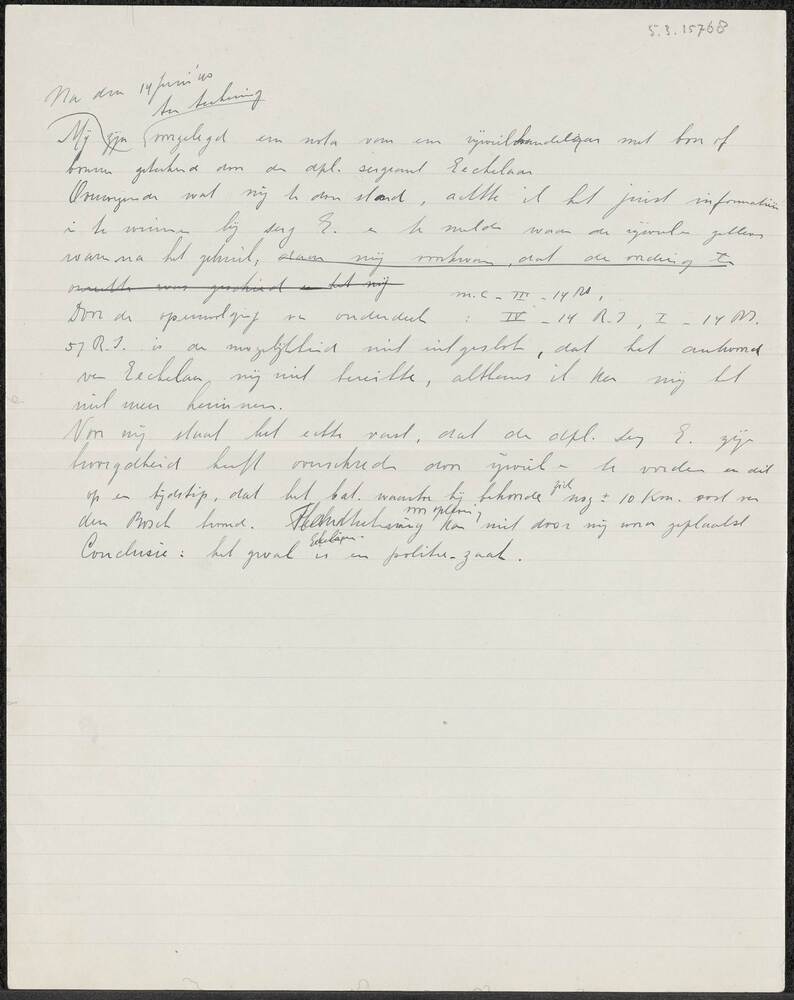 5.3.15768
Na den 14 Juni '40
Mij zijn voorgelegd een nota van een rijwielhandelaar met bon of
bonnen geteekend door den dpl. sergeant Eechelaar
Overwegende wat mij te doen stond, achtte ik het juist informatiën
in te winnen bij serg E. en te melden waar de rijwielen gebleven
waren na het gebruik, daar mij voorkwam, dat de vordering ten
onrechte was geschied en het mij
m.c. - III - 14 RA,
Door de opeenvolging van onderdeelen : IV - 14 R.I, I - 14 RA.
57 R.I. is de mogelijkheid niet uitgesloten, dat het antwoord
van Eechelaar mij niet bereikte, althans ik kan mij het
niet meer herinneren.
Voor mij staat het echter vast, dat de dpl. serg E. zijn
bevoegdheid heeft overschreden door rijwielen te vorderen en dit
op een tijdstip, dat het bat. waartoe hij behoorde zich nog ± 10 Km. oost van
den Bosch bevond. Handteekening kan niet door mij worden geplaatst
Conclusie : het geval Eechelaar is een politie-zaak.